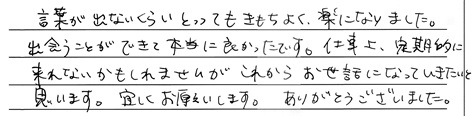 言葉が出ないくらいとってもきもちよく、楽になりました。
出会うことができて本当に良かったです。仕事上、定期的に
来れないかもしれませんがこれからお世話になっていきたいと
思います。宜しくお願いします。ありがとうございました。